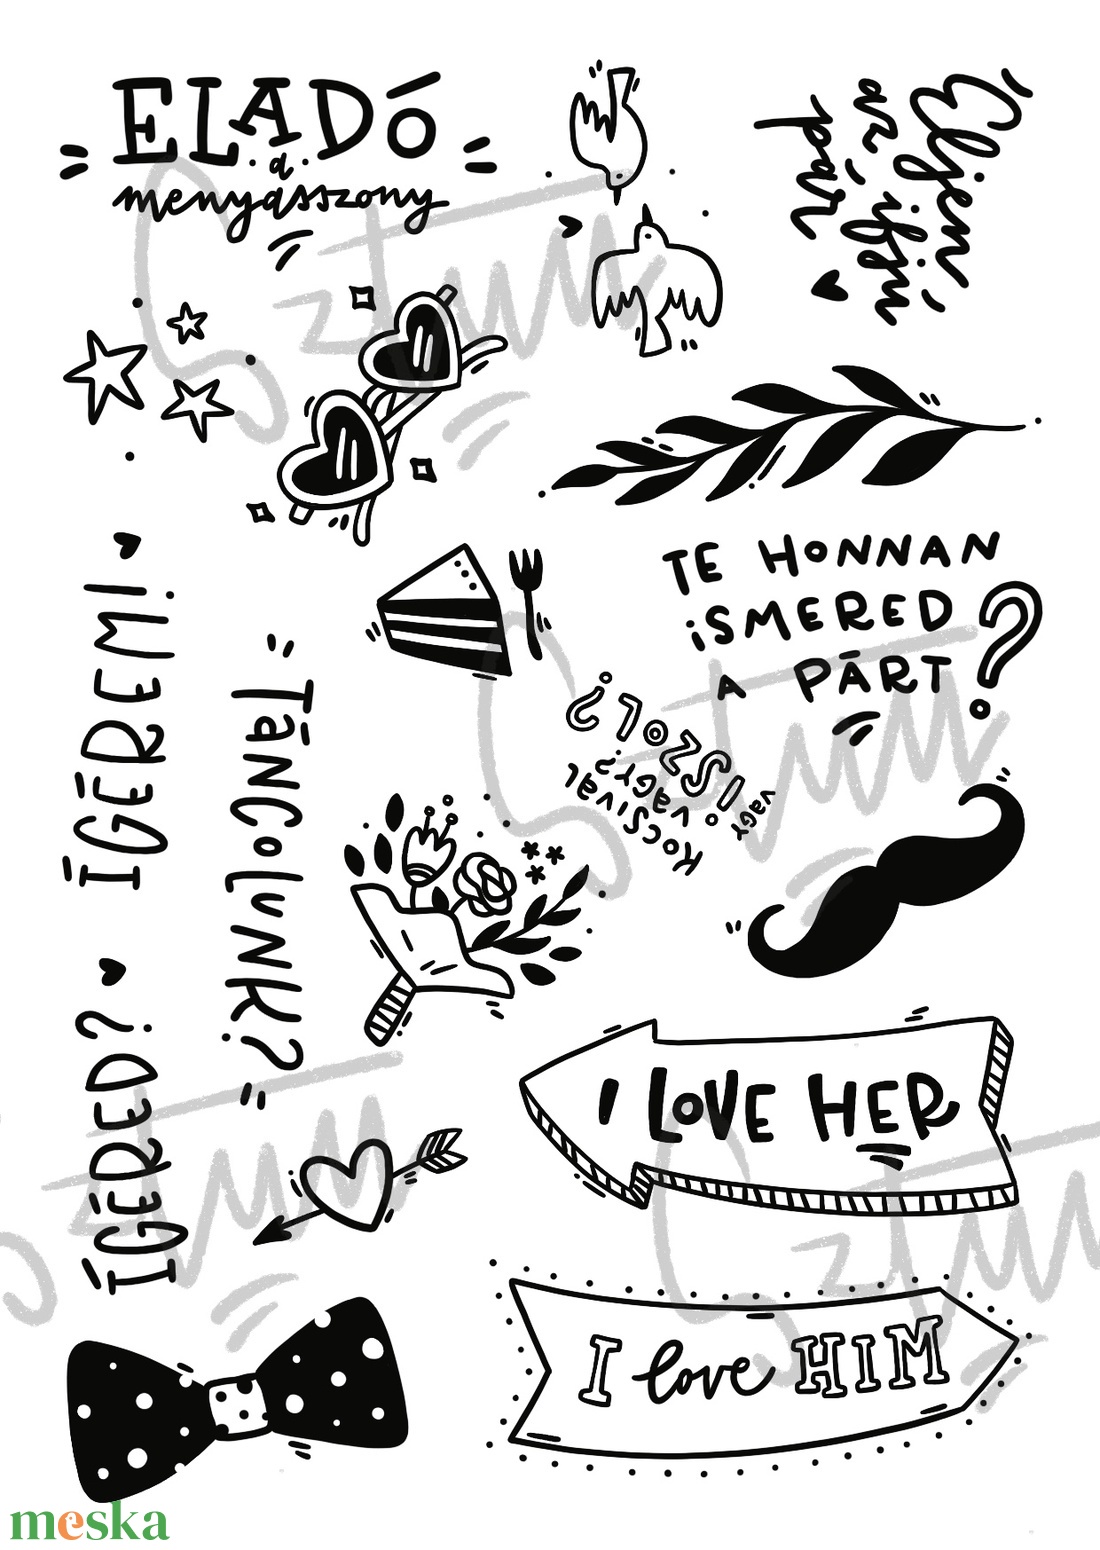 ELADÓ
a
menyasszony
Éljen
az ifjú
pár
TE HONNAN
ISMERED
A PÁRT?
KOCSIVAL
VAGY?
VAGY
ISZOL?
ÍGÉREM!
TÁNCOLUNK?
ÍGÉRED?
I LOVE HER
I love HIM
Sztuui
meska